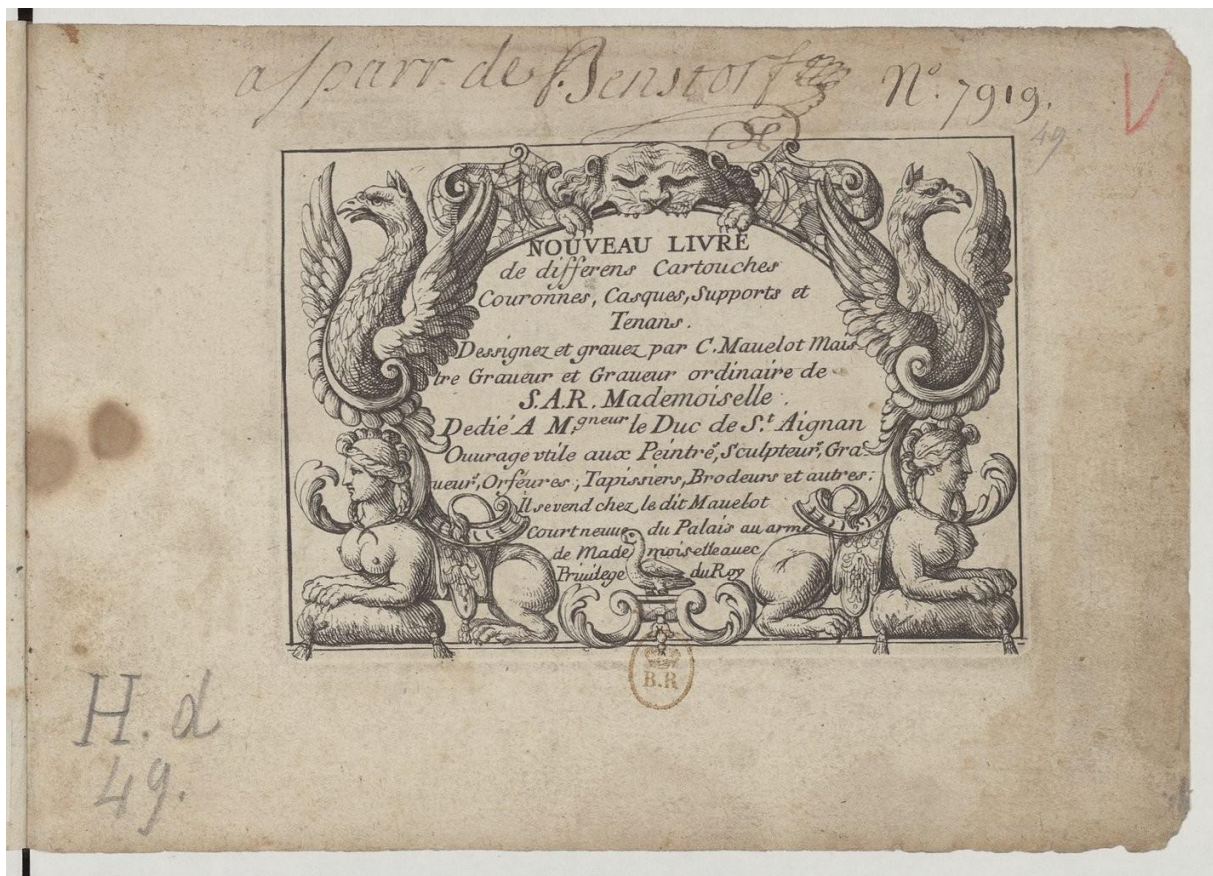 a sparr de Benstorf
N.º 7919.
49
NOUVEAU LIVRE
de differens Cartouches
Couronnes, Casques, Supports et
Tenans.
Dessignez et grauez par C. Mauelot Mais-
tre Graueur et Graueur ordinaire de
S.A.R. Mademoiselle.
Dedié A M.gneur le Duc de S.t Aignan
Ouurage vtile aux Peintre.s, Sculpteur.s, Gra-
ueur.s, Orféures, Tapissiers, Brodeurs et autres.
Il se vend chez le dit Mauelot
Court neuue du Palais au arme
de Mademoiselle auec
Priuilege du Roy
B.R
H. d
49.